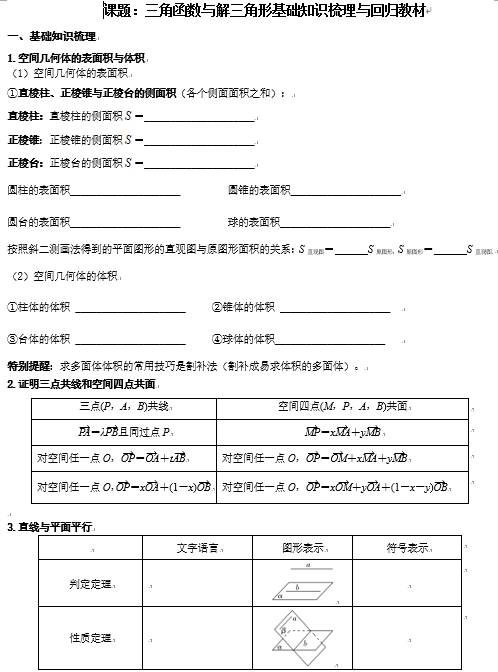 课题：三角函数与解三角形基础知识梳理与回归教材
一、基础知识梳理
1.空间几何体的表面积与体积
（1）空间几何体的表面积
①直棱柱、正棱锥与正棱台的侧面积（各个侧面面积之和）：
直棱柱：直棱柱的侧面积 S＝____________________
正棱锥：正棱锥的侧面积 S＝____________________
正棱台：正棱台的侧面积 S＝____________________
圆柱的表面积____________________ 圆锥的表面积____________________
圆台的表面积____________________ 球的表面积____________________
按照斜二测画法得到的平面图形的直观图与原图形面积的关系：S直观图＝______S原图形，S原图形＝______S直观图.
（2）空间几何体的体积
①柱体的体积 ____________________ ②锥体的体积 ____________________
③台体的体积 ____________________ ④球体的体积____________________
特别提醒：求多面体体积的常用技巧是割补法（割补成易求体积的多面体）。
2.证明三点共线和空间四点共面
三点(P，A，B)共线 空间四点(M，P，A，B)共面
PA→＝λPB→且同过点 P MP→＝xMA→＋yMB→
对空间任一点 O，OP→＝OA→＋tAB→ 对空间任一点 O，OP→＝OM→＋xMA→＋yMB→
对空间任一点 O,OP→＝xOA→＋(1－x)OB→ 对空间任一点 O，OP→＝xOM→＋yOA→＋(1－x－y)OB→
3.直线与平面平行
文字语言 图形表示 符号表示
判定定理
a
b
α
性质定理
a
β
b
α